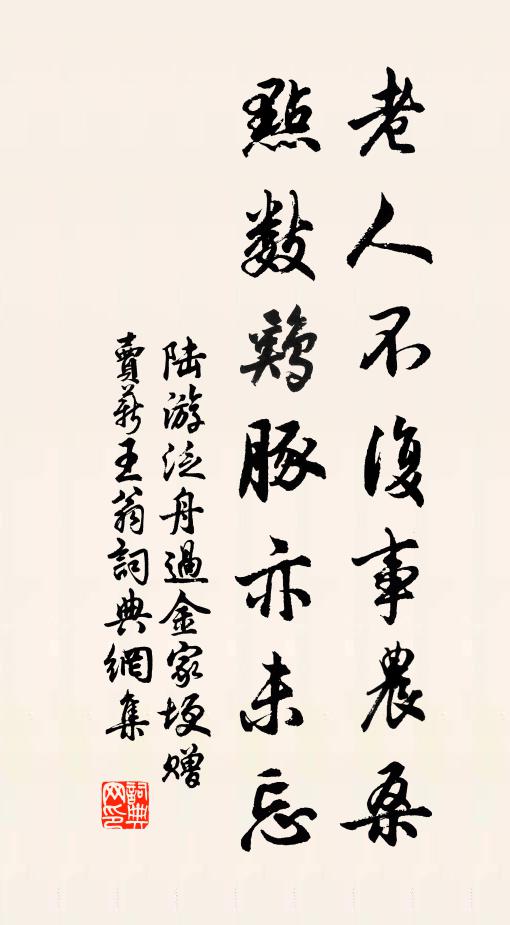 老人不復事農桑
點數鷄豚亦未忘
陸游泛舟過金家埂贈
賣薪王翁詞典網集
詞典網印